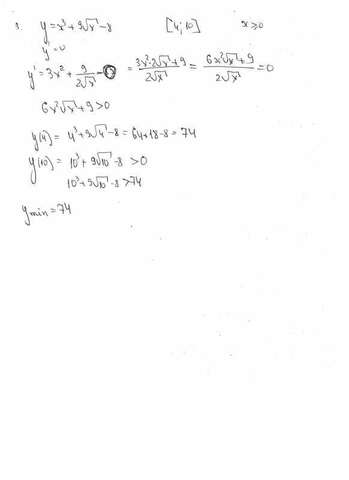 8. y = x³ + 9√x - 8 [4; 10] x ≥ 0
y' = 0
y' = 3x² + 9/(2√x) - 0 = (3x²·2√x + 9)/(2√x) = (6x²√x + 9)/(2√x) = 0
6x²√x + 9 > 0
y(4) = 4³ + 9√4 - 8 = 64 + 18 - 8 = 74
y(10) = 10³ + 9√10 - 8 > 0
10³ + 9√10 - 8 > 74
y min = 74